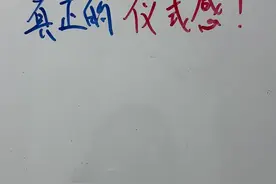 真正的 仪式感！